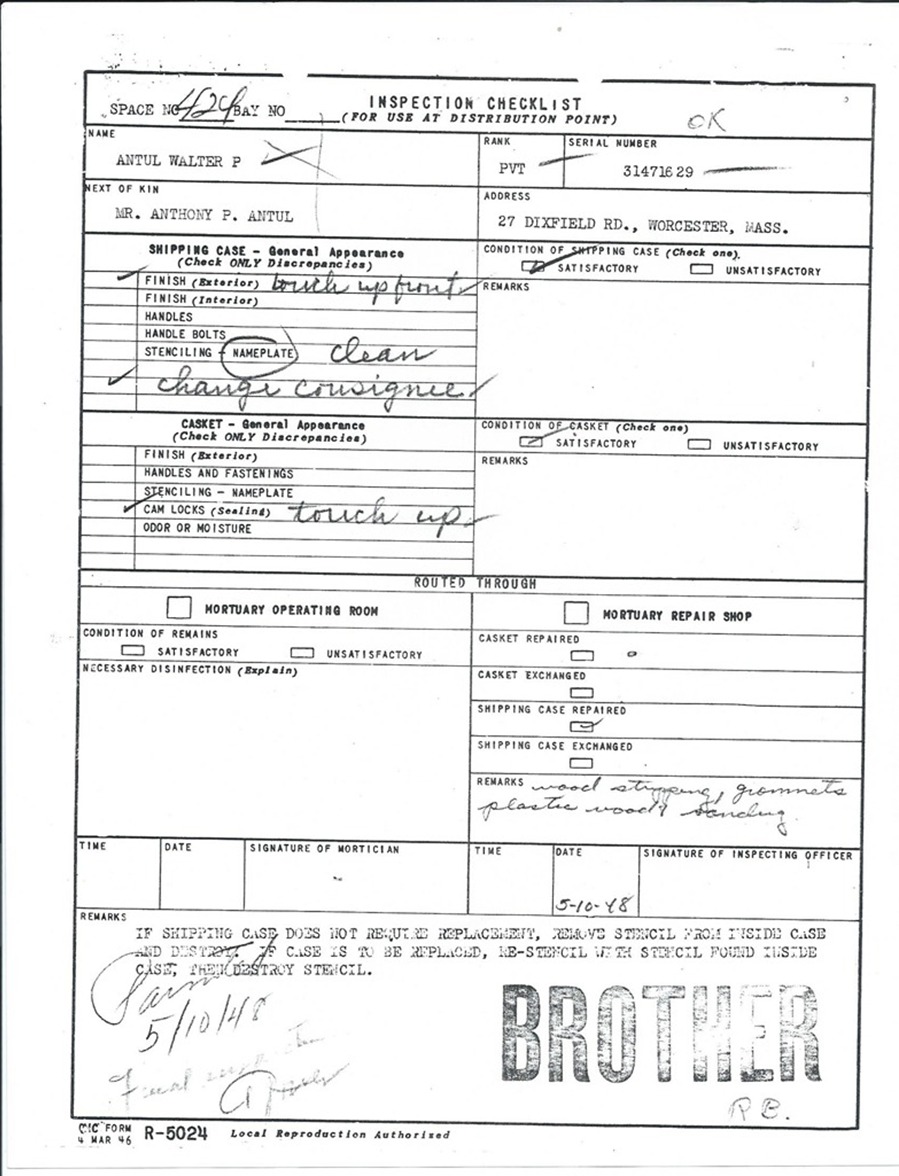 INSPECTION CHECKLIST
SPACE NO 424 BAY NO
(FOR USE AT DISTRIBUTION POINT)
OK
NAME
ANTUL WALTER P
RANK
PVT
SERIAL NUMBER
31471629
NEXT OF KIN
MR. ANTHONY P. ANTUL
ADDRESS
27 DIXFIELD RD., WORCESTER, MASS.
SHIPPING CASE - General Appearance
(Check ONLY Discrepancies)
FINISH (Exterior) touch up front
FINISH (Interior)
HANDLES
HANDLE BOLTS
STENCILING - NAMEPLATE clean
change consignee
CONDITION OF SHIPPING CASE (Check one)
SATISFACTORY UNSATISFACTORY
REMARKS
CASKET - General Appearance
(Check ONLY Discrepancies)
FINISH (Exterior)
HANDLES AND FASTENINGS
STENCILING - NAMEPLATE
CAM LOCKS (Sealing) touch up
ODOR OR MOISTURE
CONDITION OF CASKET (Check one)
SATISFACTORY UNSATISFACTORY
REMARKS
ROUTED THROUGH
MORTUARY OPERATING ROOM
CONDITION OF REMAINS
SATISFACTORY UNSATISFACTORY
NECESSARY DISINFECTION (Explain)
MORTUARY REPAIR SHOP
CASKET REPAIRED
CASKET EXCHANGED
SHIPPING CASE REPAIRED
SHIPPING CASE EXCHANGED
REMARKS wood stripping, grommets
plastic wood & sanding
TIME DATE SIGNATURE OF MORTICIAN
TIME DATE SIGNATURE OF INSPECTING OFFICER
5-10-48
REMARKS
IF SHIPPING CASE DOES NOT REQUIRE REPLACEMENT, REMOVE STENCIL FROM INSIDE CASE
AND DESTROY. IF CASE IS TO BE REPLACED, RE-STENCIL WITH STENCIL FOUND INSIDE
CASE, THEN DESTROY STENCIL.
5/10/48
BROTHER
R.B.
CIC FORM
4 MAR 46 R-5024 Local Reproduction Authorized